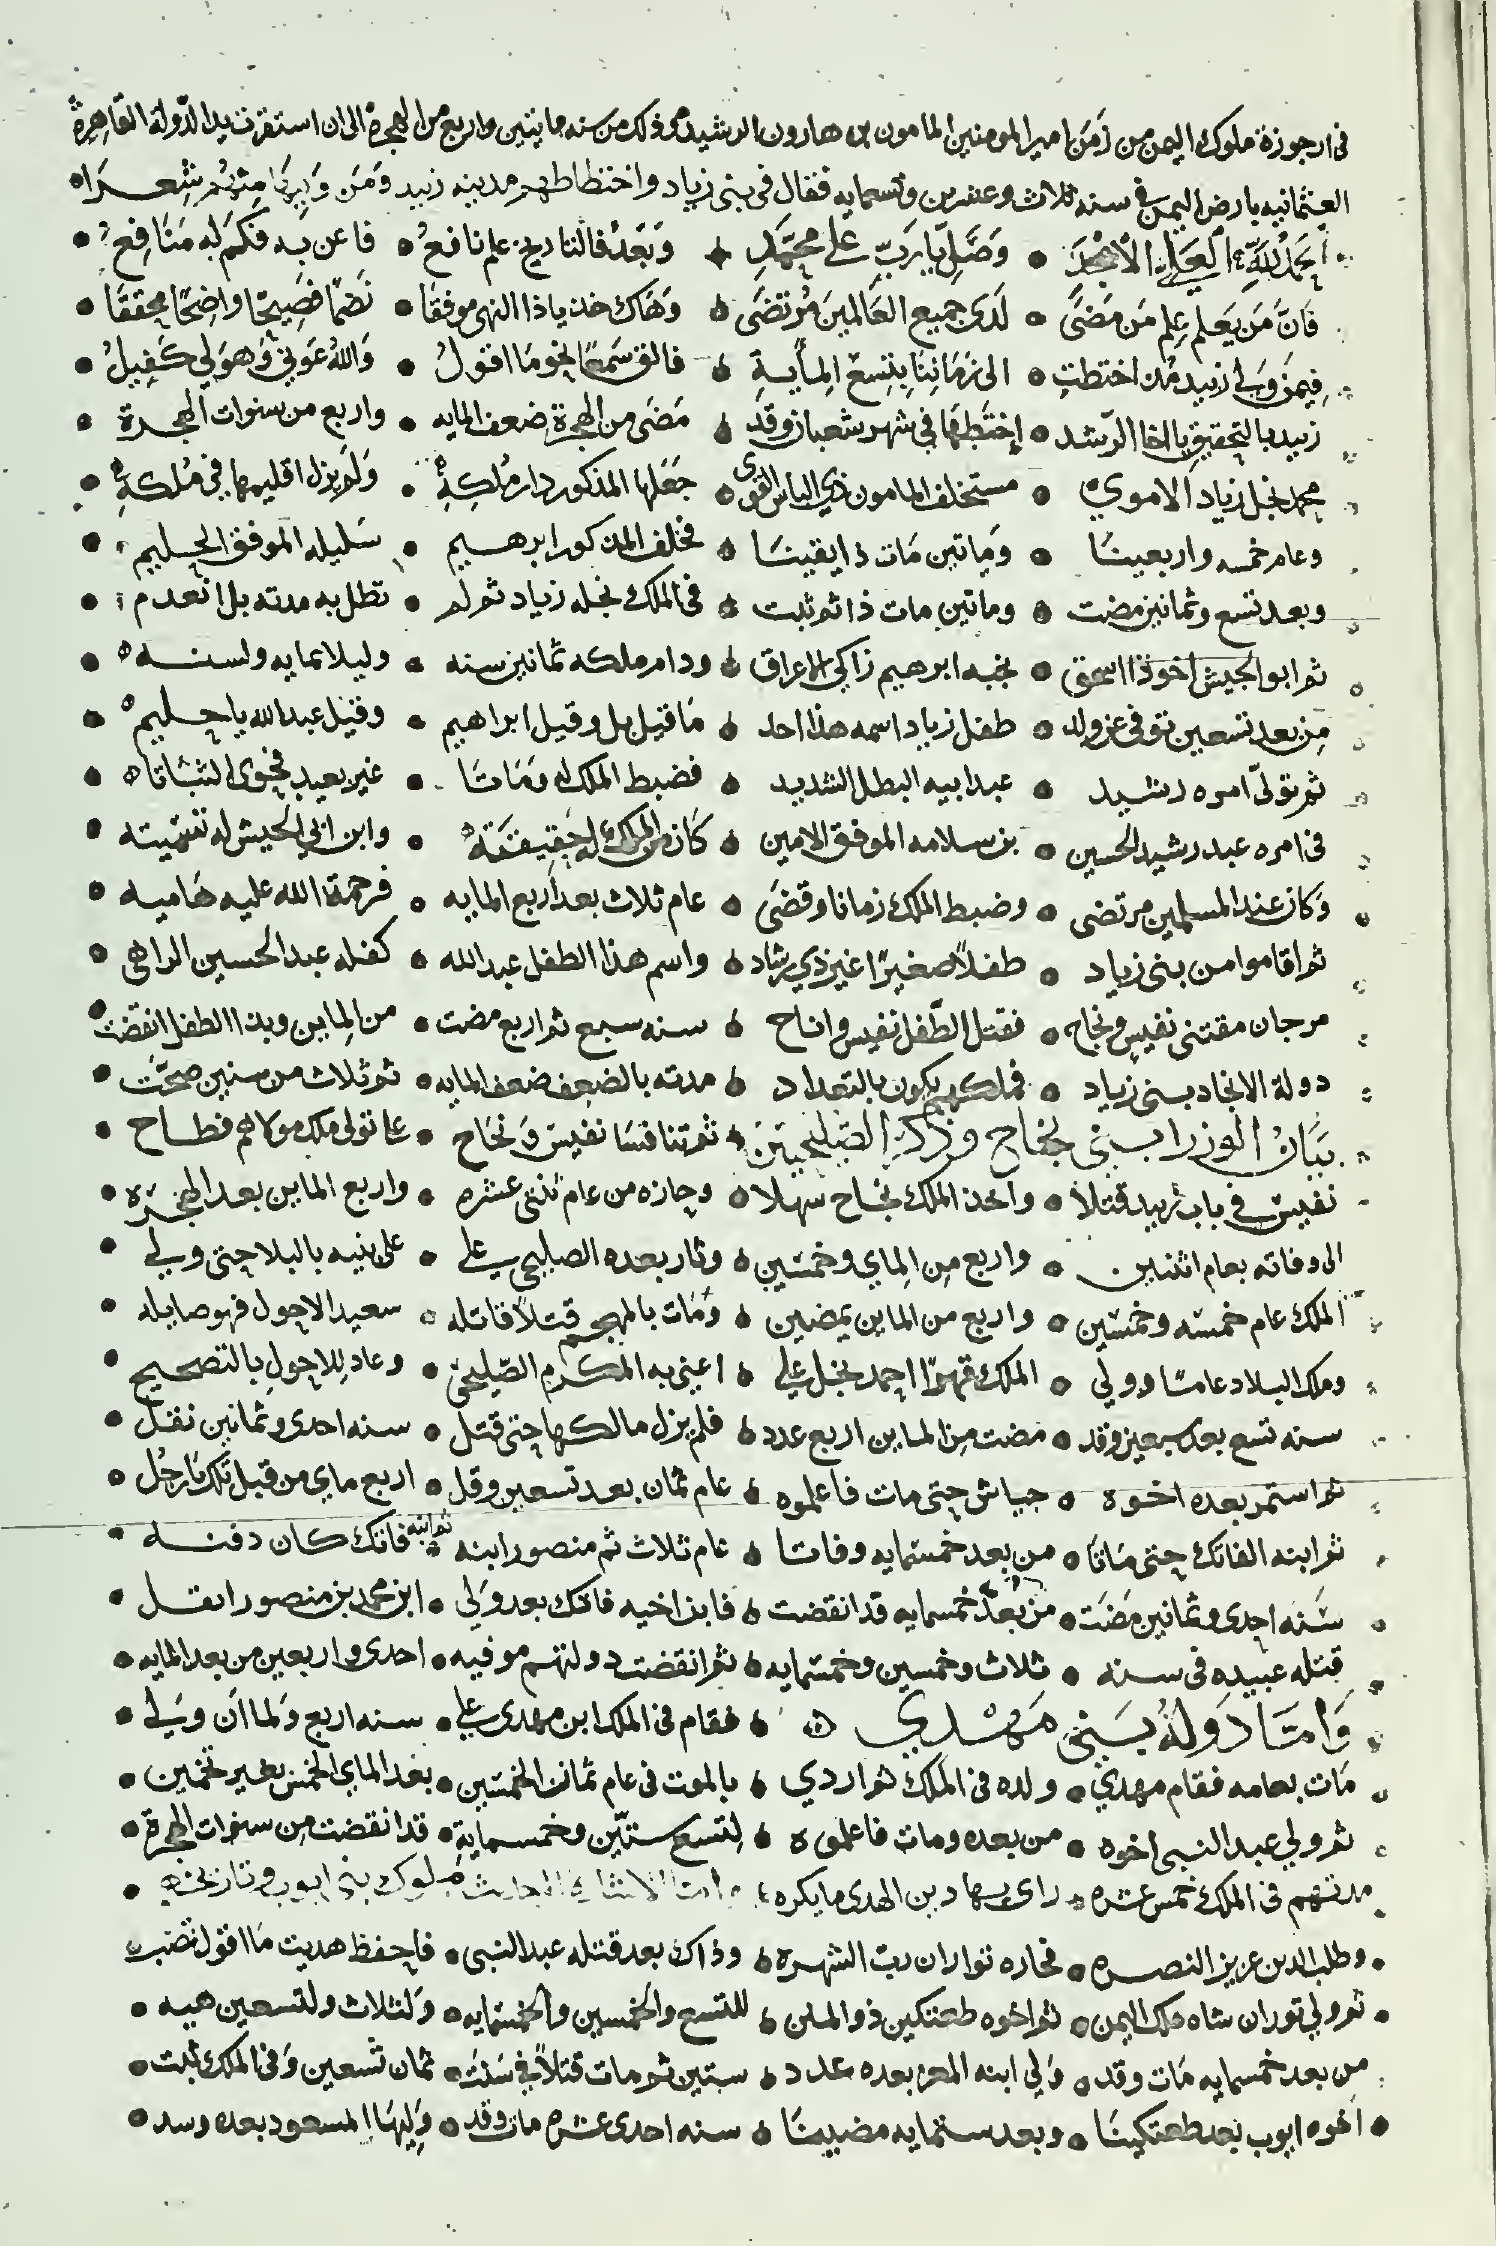 في ارجوزة ملوك اليمن من زمن امير المومنين المامون بن هارون الرشيد وذلك من سنه مايتين واربع من الهجرة الى ان استقرت يد الدولة القاهرة
العثمانيه بارض اليمن في سنه ثلاث وعشرين وتسمايه فقال في بني زياد واختطاطهم مدينه زبيد ومن وزيرها منهم شعرا
الحمد لله العلي الامجد • وصل يا رب على محمد • وبعد فالتاريخ علم نافع • فاعن به فكم له منافع •
فان من يعلم علم من مضى • لدى جميع العالمين مرتضى • وهاك خذ ياذا النهى موفقا • نضما فصيحا واضحا محققا •
فيمن ولي زبيد مذ اختطت • الى زماننا بتسع المأية • فالق سمعا نحو ما اقول • والله عوني وهو لي كفيل •
زبيد بالتحقيق يا اخا الرشد • إختطها في شهر شعبان وقد • مضى من الهجرة ضعف المايه • واربع من سنوات الهجرة •
محمد نجل زياد الاموي • مستخلف المامون ذي الباس القوى • جعلها المذكور دار ملكه • ولم يزل اقليمها في ملكه •
وعام خمسه واربعينا • وماتين مات ذا يقينا • فخلف المذكور ابرهيم • سليله الموفق الحليم •
وبعد تسع وثمانين مضت • وماتين مات ذا ثم ثبت • في الملك نجله زياد ثم لم • تطل به مدته بل انعدم •
ثم ابو الجيش اخو ذا اسحق • نجبه ابرهيم زاكي الاعراق • ودام ملكه ثمانين سنه • وليلا ثمايه ولسنه •
من بعد تسعين توفي عن ولد • طفل زياد اسمه هذا احد • ما قيل بل وقيل ابراهيم • وقيل عبد الله يا حليم •
ثم تولى امره رشيد • عبد ابيه البطل الشديد • فضبط الملك له وماتا • غير بعيد فحوى الثباتا •
في امره عبد رشيد الحسين • بن سلامه الموفق الامين • كان من الملك له حقيقته • وابن ابي الجيش له تسميته •
وكان عند المسلمين مرتضى • وضبط الملك زمانا وقضى • عام ثلاث بعد اربع المايه • فرحمة الله عليه هاميه •
ثم اقاموا من بني زياد • طفلا صغيرا غير ذي رشاد • واسم هذا الطفل عبد الله • كفله عبد الحسين الزاهي •
مرجان مقتنى نفيس ونجاح • فقتل الطفل نفيس واناح • سنه سبع ثم اربع مضت • من الماين وبذا الطفل انقضت •
دولة الانجاد بني زياد • فملكهم يكون بالتعداد • مدته بالضعف ضعف المايه • ثم ثلاث من سنين صحت •
بيان الوزرا بني نجاح وذكر الصليحيين • ثم تنافسا نفيس ونجاح • عاتولى ملك مولاهم فطاح •
نفيس في باب زبيد قتلا • واخذ الملك نجاح سهلا • وحازه من عام ثنتي عشره • واربع الماين بعد الهجره •
الى وفاته بعام اثنين • واربع من الماي وخمسين • وثار بعده الصليحي علي • على بنيه بالبلا حتى ولي •
الملك عام خمسه وخمسين • واربع من الماين يمضين • ومات بالمهجم قتلا قاتله • سعيد الاحول فهو صايله •
وملك البلاد عاما وولي • الملك قهرا احمد نجل علي • اعني به المكرم الصليحي • وعاد للاحول بالتصحيح •
سنه تسع بعد سبعين وقد • مضت من الماين اربع عدد • فلم يزل مالكها حتى قتل • سنه احدى وثمانين نقل •
ثم استمر بعده اخوه • جياش حتى مات فاعلموه • عام ثمان بعد تسعين وقل • اربع ماي من قبل تلك يا رجل •
ثم ابنه الفاتك حتى ماتا • من بعد خمسمايه وفاتا • عام ثلاث ثم منصور ابنه • ثم ابنه فاتك كان دفنه •
سنه احدى وثمانين مضت • من بعد خمسمايه قد انقضت • فابن اخيه فاتك بعد ولي • ابن محمد بن منصور انقل •
قتله عبيده في سنه • ثلاث وخمسين وخمسمايه • ثم انقضت دولتهم موفيه • احدى واربعين من بعد المايه •
وأما دولة بني مهدي • فقام في الملك ابن مهدي علي • سنه اربع ولما ان ولي •
مات بعامه فقام مهدي • ولده في الملك ثم اردي • بالموت في عام ثمان الخمسين • بعد الماي الخمس بغير تخمين •
ثم ولي عبد النبي اخوه • من بعده ومات فاعلموه • لتسع ستين وخمسماية • قد انقضت من سنوات الهجرة •
مدتهم في الملك خمس عشره • راى بها دين الهدى ما يكره • ملوك بني ايوب وتاريخه •
وطلب الدين عزيز النصره • فجاره توران رب الشهرة • وذاك بعد قتله عبد النبي • فاحفظ هديت ما اقول تصب
ثم ولي توران شاه ملك اليمن • ثم اخوه طغتكين ذو المنن • للتسع والخمسين والخمسمايه • ولثلاث ولتسعين هيه •
من بعد خمسمايه مات وقد • ولي ابنه المعز بعده عدد • ستين ثم مات قتلا في سنت • ثمان تسعين وفي الملك ثبت •
اخوه ايوب بعد طغتكينا • وبعد ستمايه مضينا • سنه احدى عشره مات وقد • وليها المسعود بعده وسد •